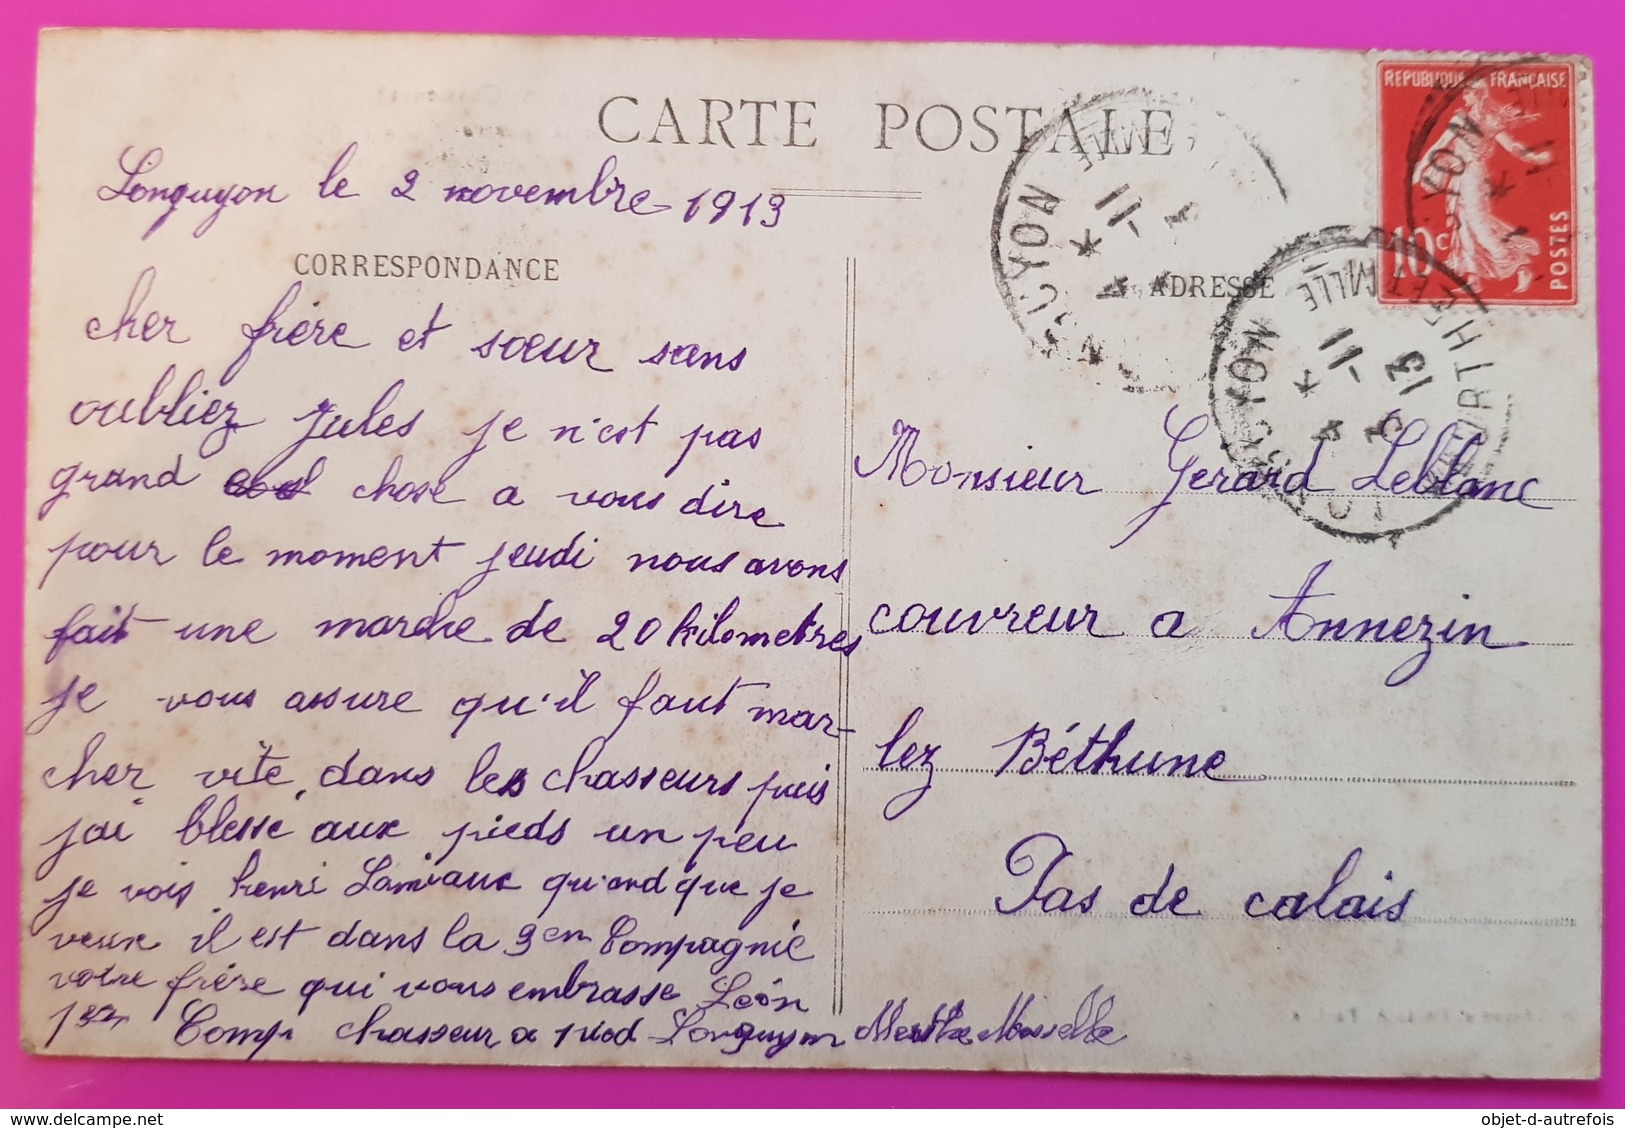 CARTE POSTALE
Longuyon le 2 novembre 1913
CORRESPONDANCE
cher frère et sœur sans
oubliez jules je n'est pas
grand chose a vous dire
pour le moment jeudi nous avons
fait une marche de 20 kilometres
je vous assure qu'il faut mar-
cher vite, dans les chasseurs puis
jai blessé aux pieds un peu
je vois henri Lamiaux quand que je
veux il est dans la 3em Compagnie
votre frère qui vous embrasse Léon
1er Comp chasseur a pied Longuyon Merthe Moselle
ADRESSE
Monsieur Gerard Leblanc
couvreur a Annezin
lez Béthune
Pas de calais
REPUBLIQUE FRANÇAISE
10c
POSTES
GUYON
4 -11
LONGUYON
4 -11
13
MEURTHE ET MLLE
objet-d-autrefois